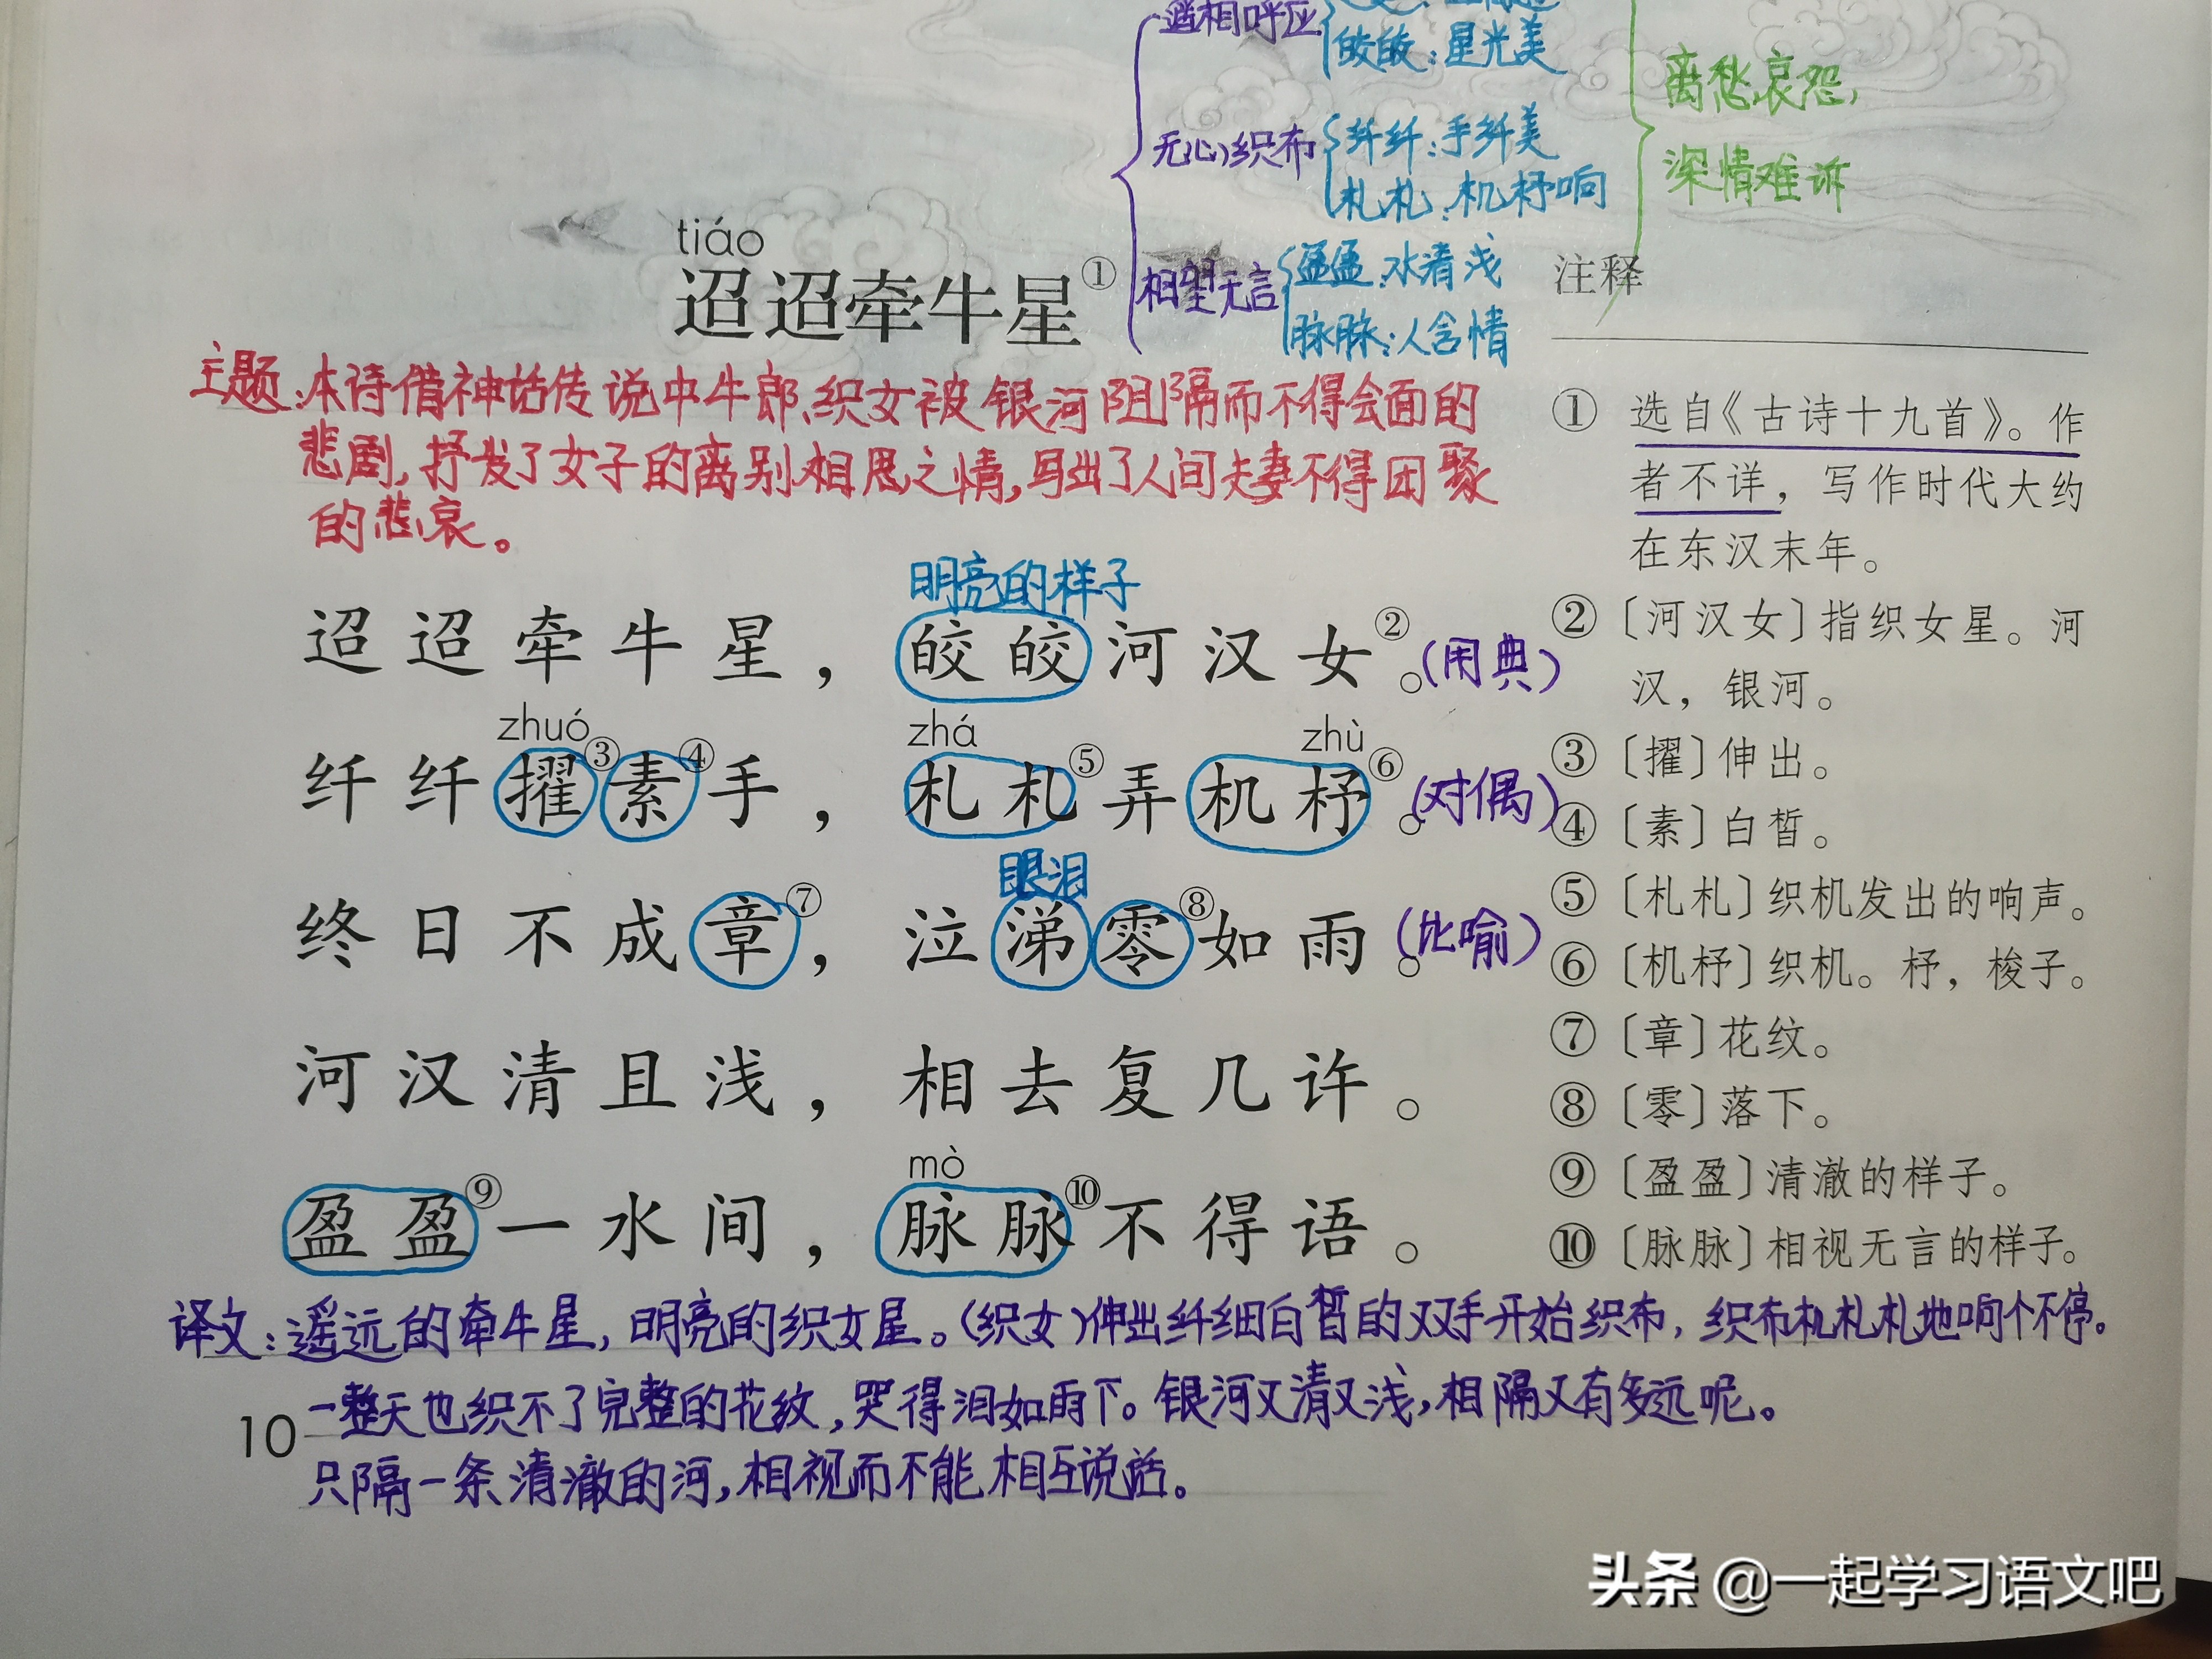 遥相呼应
皎皎：星光美
离愁哀怨，
无心织布
纤纤：手纤美
札札：机杼响
深情难诉
tiáo
迢迢牵牛星①
相望无言
盈盈：水清浅
脉脉：人含情
注释
主题：本诗借神话传说中牛郎、织女被银河阻隔而不得会面的
悲剧，抒发了女子的离别相思之情，写出了人间夫妻不得团聚
的悲哀。
明亮的样子
迢迢牵牛星，皎皎河汉女②。（用典）
zhuó zhá zhù
纤纤擢③素④手，札札⑤弄机杼⑥。（对偶）
眼泪
终日不成章⑦，泣涕零⑧如雨。（比喻）
河汉清且浅，相去复几许。
mò
盈盈⑨一水间，脉脉⑩不得语。
① 选自《古诗十九首》。作
者不详，写作时代大约
在东汉末年。
② 〔河汉女〕指织女星。河
汉，银河。
③ 〔擢〕伸出。
④ 〔素〕白皙。
⑤ 〔札札〕织机发出的响声。
⑥ 〔机杼〕织机。杼，梭子。
⑦ 〔章〕花纹。
⑧ 〔零〕落下。
⑨ 〔盈盈〕清澈的样子。
⑩ 〔脉脉〕相视无言的样子。
译文：遥远的牵牛星，明亮的织女星。（织女）伸出纤细白皙的双手开始织布，织布机札札地响个不停。
一整天也织不了完整的花纹，哭得泪如雨下。银河又清又浅，相隔又有多远呢。
只隔一条清澈的河，相视而不能相互说话。
10
头条 @一起学习语文吧